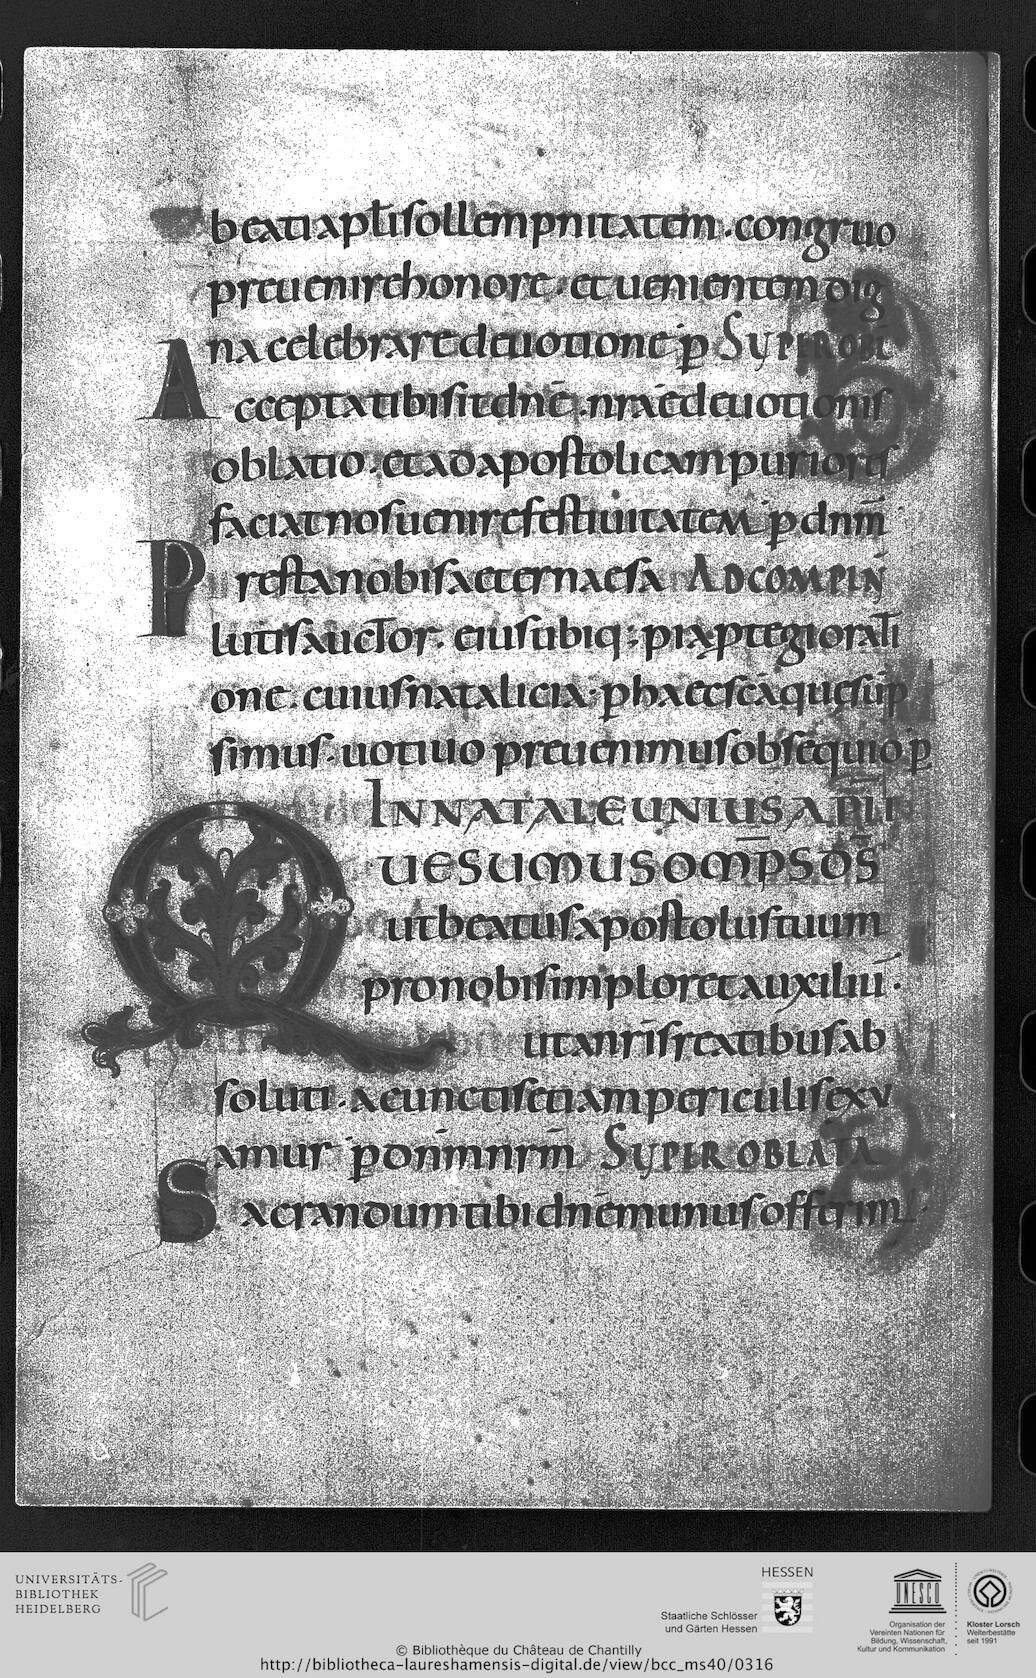 beati apłi sollempnitatem . congruo
preuenire honore . et uenientem dig
na celebrare deuotione ꝑ SUPER OBĪ
Accepta tibi sit dnē . nrāe deuotionis
oblatio . et ad apostolicam puriores
faciat nos uenire festiuitatem ꝑ dnm̄
Presta nobis aeternae sā AD COMPLN̄
lutis auctor : eius ubiq : pia ꝑtegi orati
one . cuius natalicia ꝑ haec scā quesūp
simus . uotiuo preuenimus obsequio ꝑ
IN NATALE UNIUS APŁI
QUESUMUS OMP̄S DS̄
ut beatus apostolus tuum
pro nobis imploret auxiliū .
ut a nrīs reatibus ab
soluti . a cunctis etiam periculis exu
amur ꝑ dnīm nrm̄ SUPER OBLATA
Sacrandum tibi dnē munus offerim
UNIVERSITÄTS-
BIBLIOTHEK
HEIDELBERG
HESSEN
Staatliche Schlösser
und Gärten Hessen
UNESCO
Organisation der
Vereinten Nationen für
Bildung, Wissenschaft,
Kultur und Kommunikation
Kloster Lorsch
Welterbestätte
seit 1991
© Bibliothèque du Château de Chantilly
http://bibliotheca-laureshamensis-digital.de/view/bcc_ms40/0316